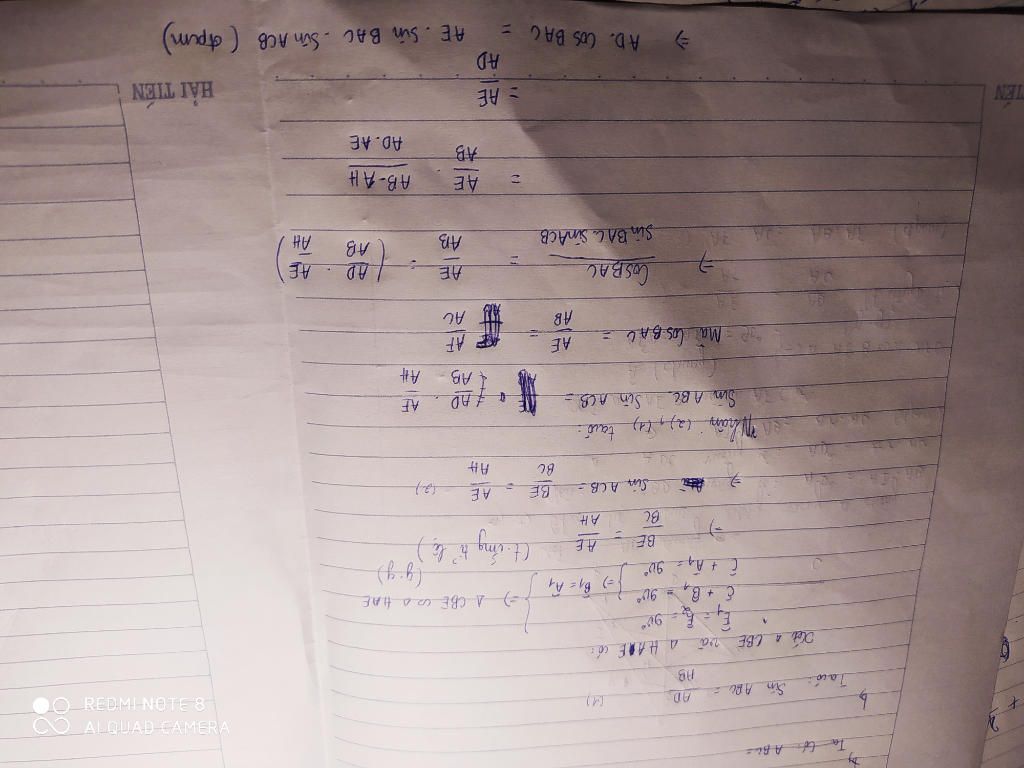 Ta có: ABC =
b)
Ta có: Sin ABC = AD/AB (1)
Xét Δ CBE và Δ HAE có:
Ê1 = Ê2 = 90°
Ĉ + B̂1 = 90°
Ĉ + Â1 = 90° } => B̂1 = Â1 } => Δ CBE ∽ Δ HAE (g.g)
=> BE/BC = AE/AH (t. ứng tỉ lệ)
=> Sin ACB = BE/BC = AE/AH (2)
Nhân (2), (1) ta có:
Sin ABC. Sin ACB = AD/AB . AE/AH
Mà: Cos BAC = AE/AB = AF/AC
=> Cos BAC / Sin BAC. Sin ACB = AE/AB = (AD/AB . AE/AH)
= AE/AB . AB-AH/AD.AE
= AE/AD
=> AD. Cos BAC = AE. Sin BAC - Sin ACB (đpcm)
HẢI TIẾN
TIẾN
REDMI NOTE 8
AI QUAD CAMERA